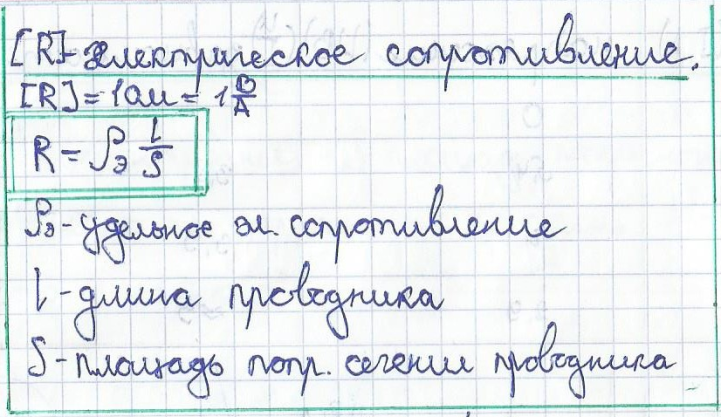 [R]-электрическое сопротивление.
[R]=1Ом=1 В/А
R=ρэ l/S
ρэ-удельное эл. сопротивление
l-длина проводника
S-площадь попр. сечения проводника